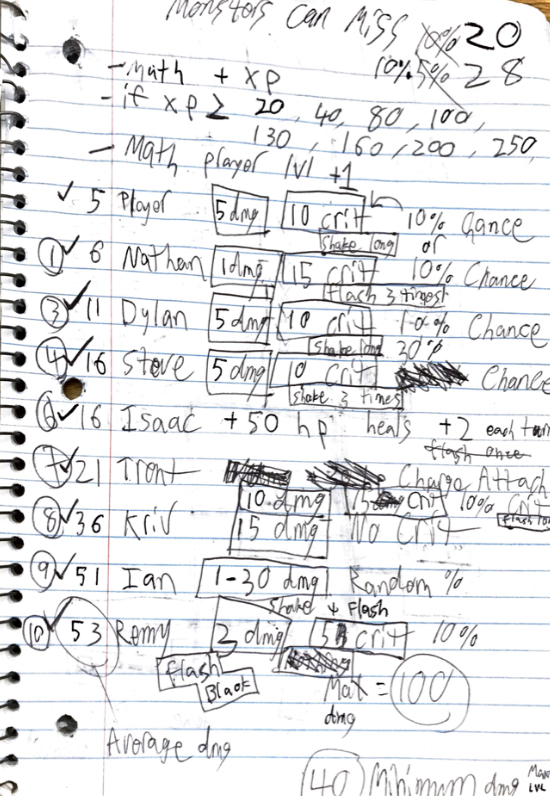 Monsters can Miss 20
10% 5% 28
- Math + xp
- if xp ≥ 20, 40, 80, 100,
130, 160, 200, 250,
- Math player lvl +1
✓ 5 Player 5 dmg 10 crit 10% Chance
shake long or
① ✓ 6 Nathan 1 dmg 15 crit 10% Chance
flash 3 times
③ ✓ 11 Dylan 5 dmg 10 crit 10% Chance
shake long 30%
④ ✓ 16 Steve 5 dmg 10 crit Chance
shake 3 times
⑥ ✓ 16 Isaac +50 hp heals +2 each turn
flash once
⑦ ✓ 21 Tront Charge Attack
10 dmg crit 10% crit
⑧ ✓ 36 Kriv 15 dmg No Crit flash
⑨ ✓ 51 Ian 1-30 dmg Random %
shake + Flash
⑩ ✓ 53 Remy 2 dmg crit 10%
flash Black
Max dmg = 100
Avorage dmg
40 Minimum dmg
LVL